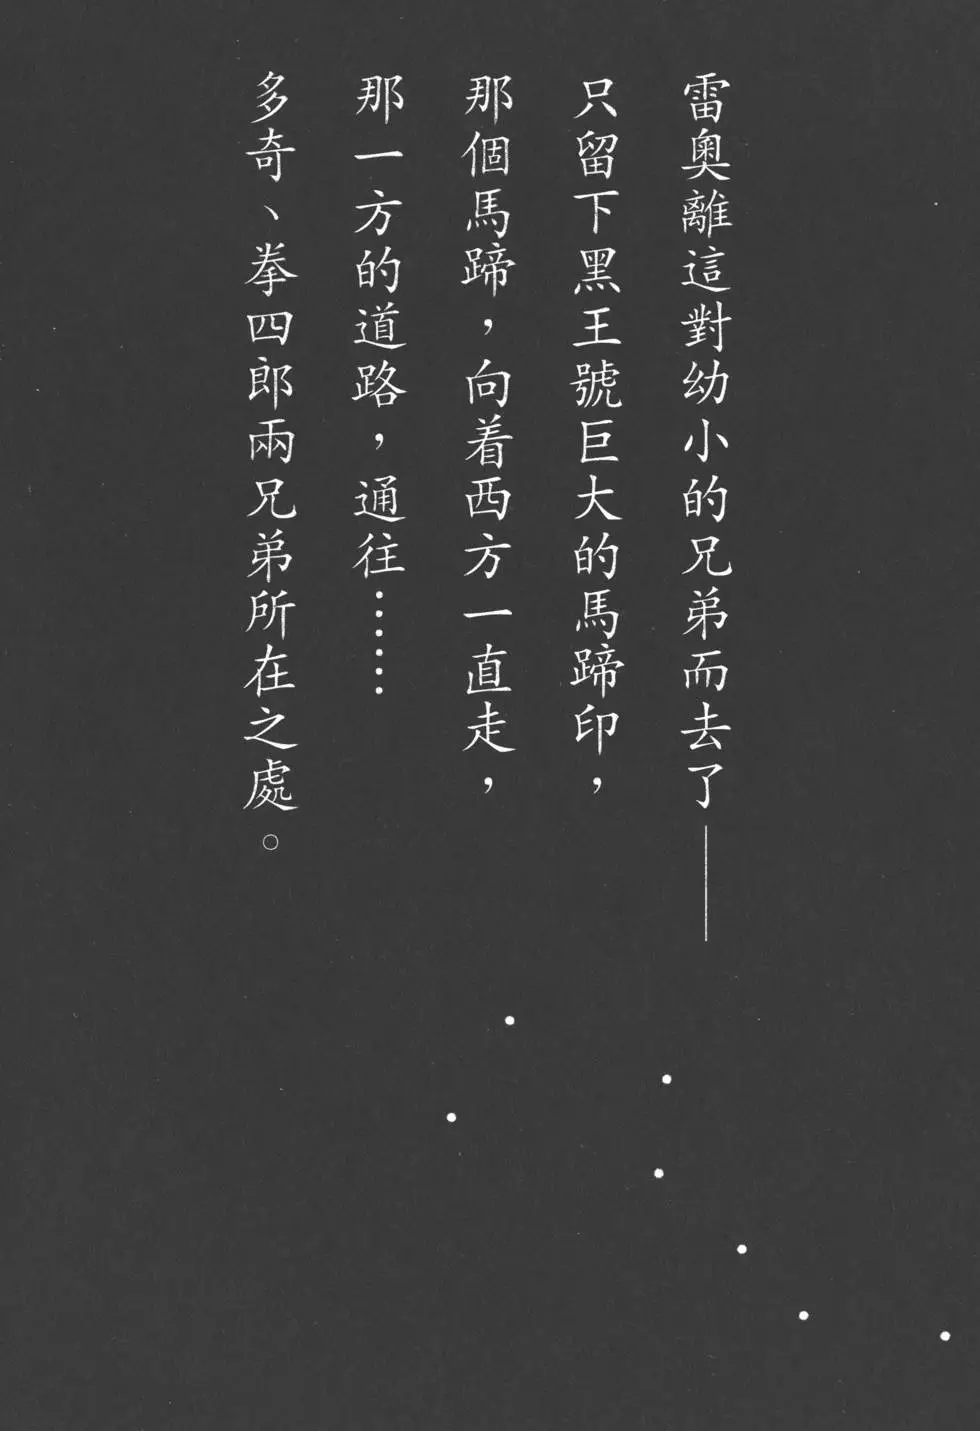 雷奧離這對幼小的兄弟而去了——
只留下黑王號巨大的馬蹄印，
那個馬蹄，向着西方一直走，
那一方的道路，通往……
多奇、拳四郎兩兄弟所在之處。